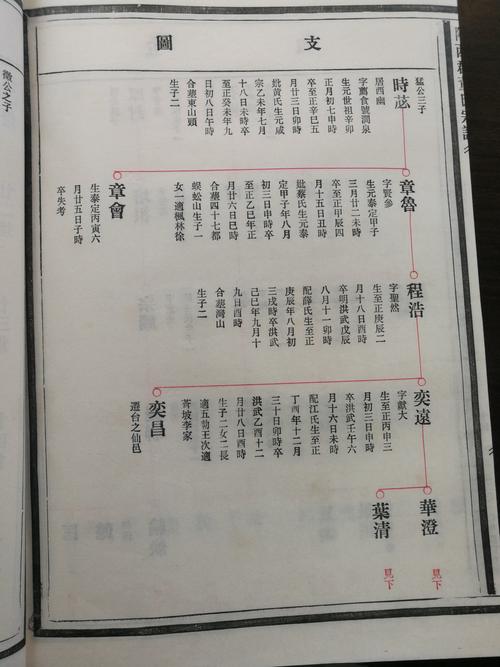 支圖
猛公三子
時苾
居西幽
字薦食號潤泉
生元世祖辛卯
正月初七申時
卒至正辛巳五
月廿三日卯時
妣黃氏生元咸
宗乙未年七月
十八日未時卒
至正癸未年九
日初八日午時
合墓東山頭
生子二
章魯
字賢參
生元泰定甲子
三月廿二未時
卒至正甲辰四
月十五日丑時
妣蔡氏生元泰
定甲子年八月
初三日申時卒
至正乙巳年正
月廿六日巳時
合墓四十七都
蜈蚣山生子一
女一適楓林徐
章會
生泰定丙寅六
月廿五日子時
卒失考
程浩
字聖然
生至正庚辰二
月十八日酉時
卒明洪武戊辰
八月十一卯時
配薛氏生至正
庚辰年八月初
三戌時卒洪武
己巳年九月十
九日酉時
合墓灣山
生子二
奕遠
字獻大
生至正丙申三
月初三日申時
卒洪武壬午六
月十六日未時
配江氏生至正
丁酉年十二月
三十日卯時卒
洪武乙酉十二
月廿八日酉時
生子二女二長
適五勃王次適
坡李家
奕昌
遷台之仙邑
華澄
見下
葉清
見下
徵公之子